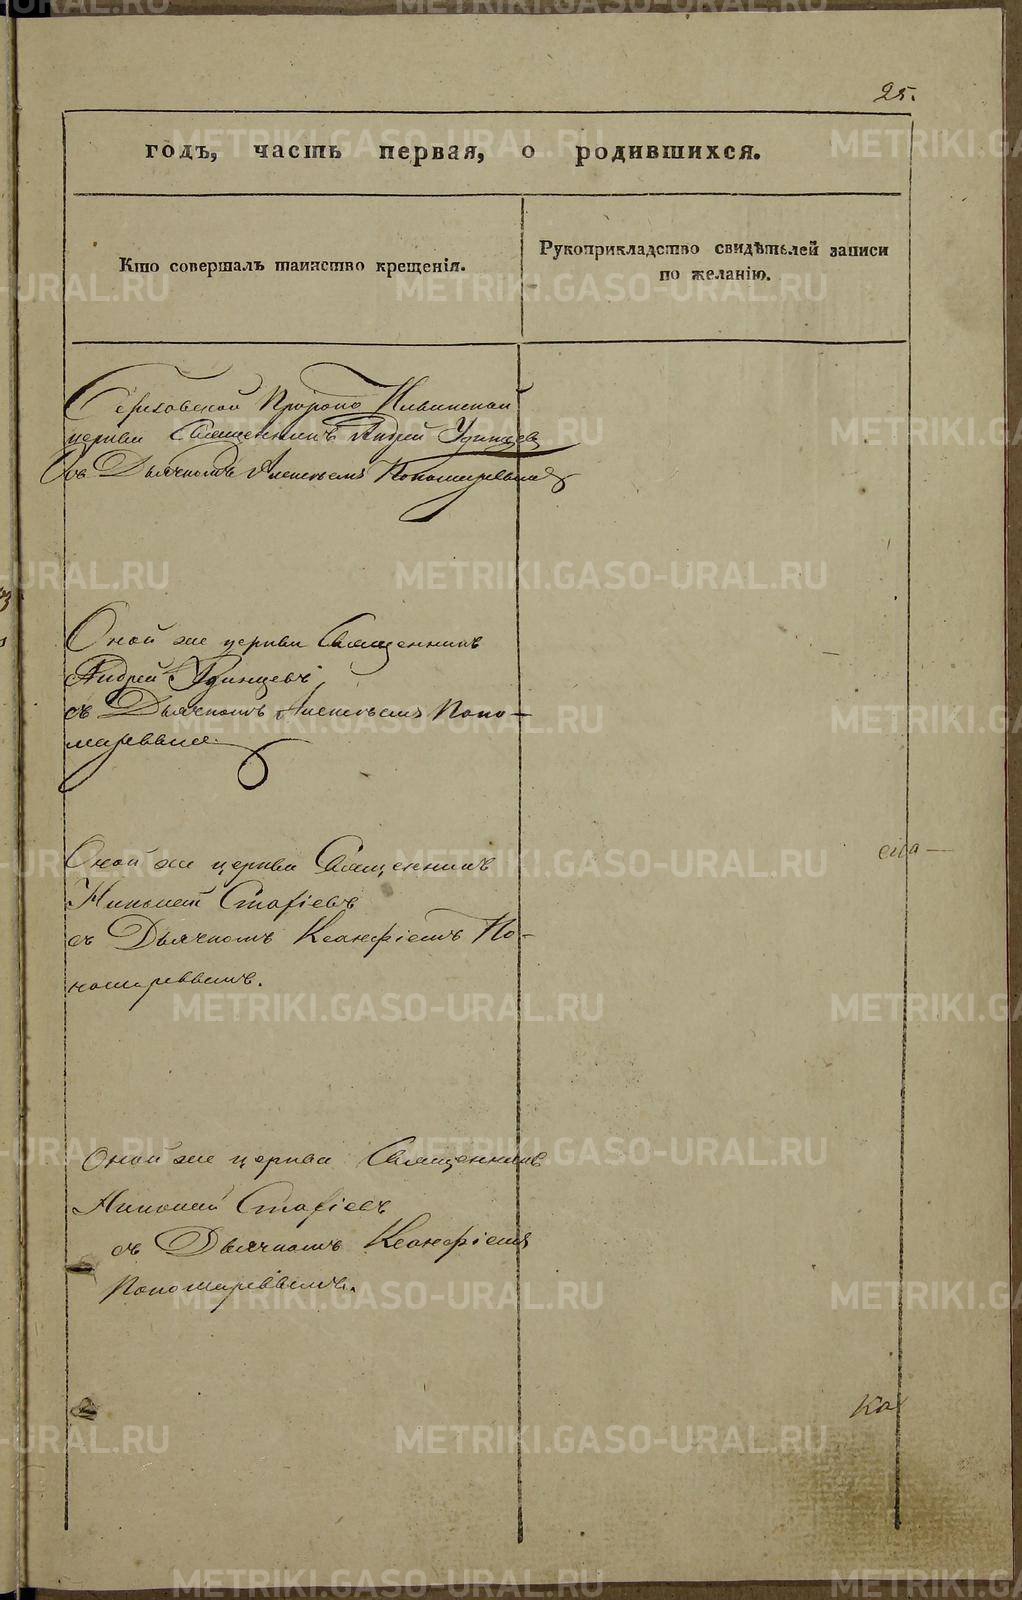 25.
годъ, часть первая, о родившихся.
Кто совершалъ таинство крещенія.
Рукоприкладство свидѣтелей записи
по желанію.
Пророко Ильинской
церкви Священникъ Андрей Удинцев
Съ Дьячкомъ Алексѣемъ Пономаревым
Оной же церкви Священникъ
Андрей Удинцевъ
съ Дьячкомъ Алексѣемъ Поно-
маревым
Оной же церкви Священникъ
Николай Стафіевъ
съ Дьячкомъ Ксанфіемъ По-
номаревымъ.
Оной же церкви Священникъ
Николай Стафіевъ
съ Дьячкомъ Ксанфіемъ
Пономаревымъ.
Ка
METRIKI.GASO-URAL.RU